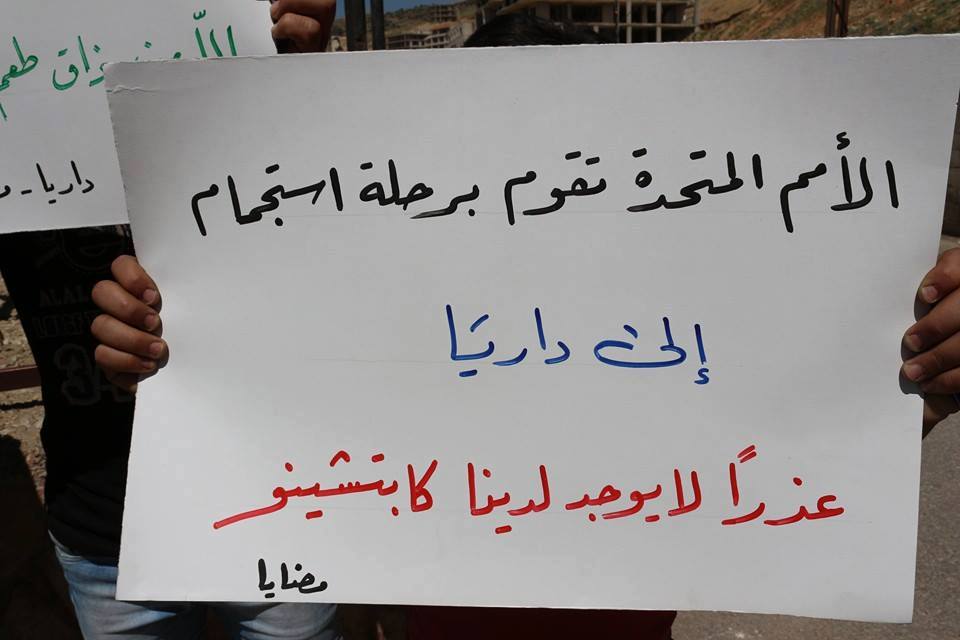 الأمم المتحدة تقوم برحلة استجمام
إلى داريَّا
عذراً لا يوجد لدينا كابتشينو
مضايا
ذاق طعم
داريا -